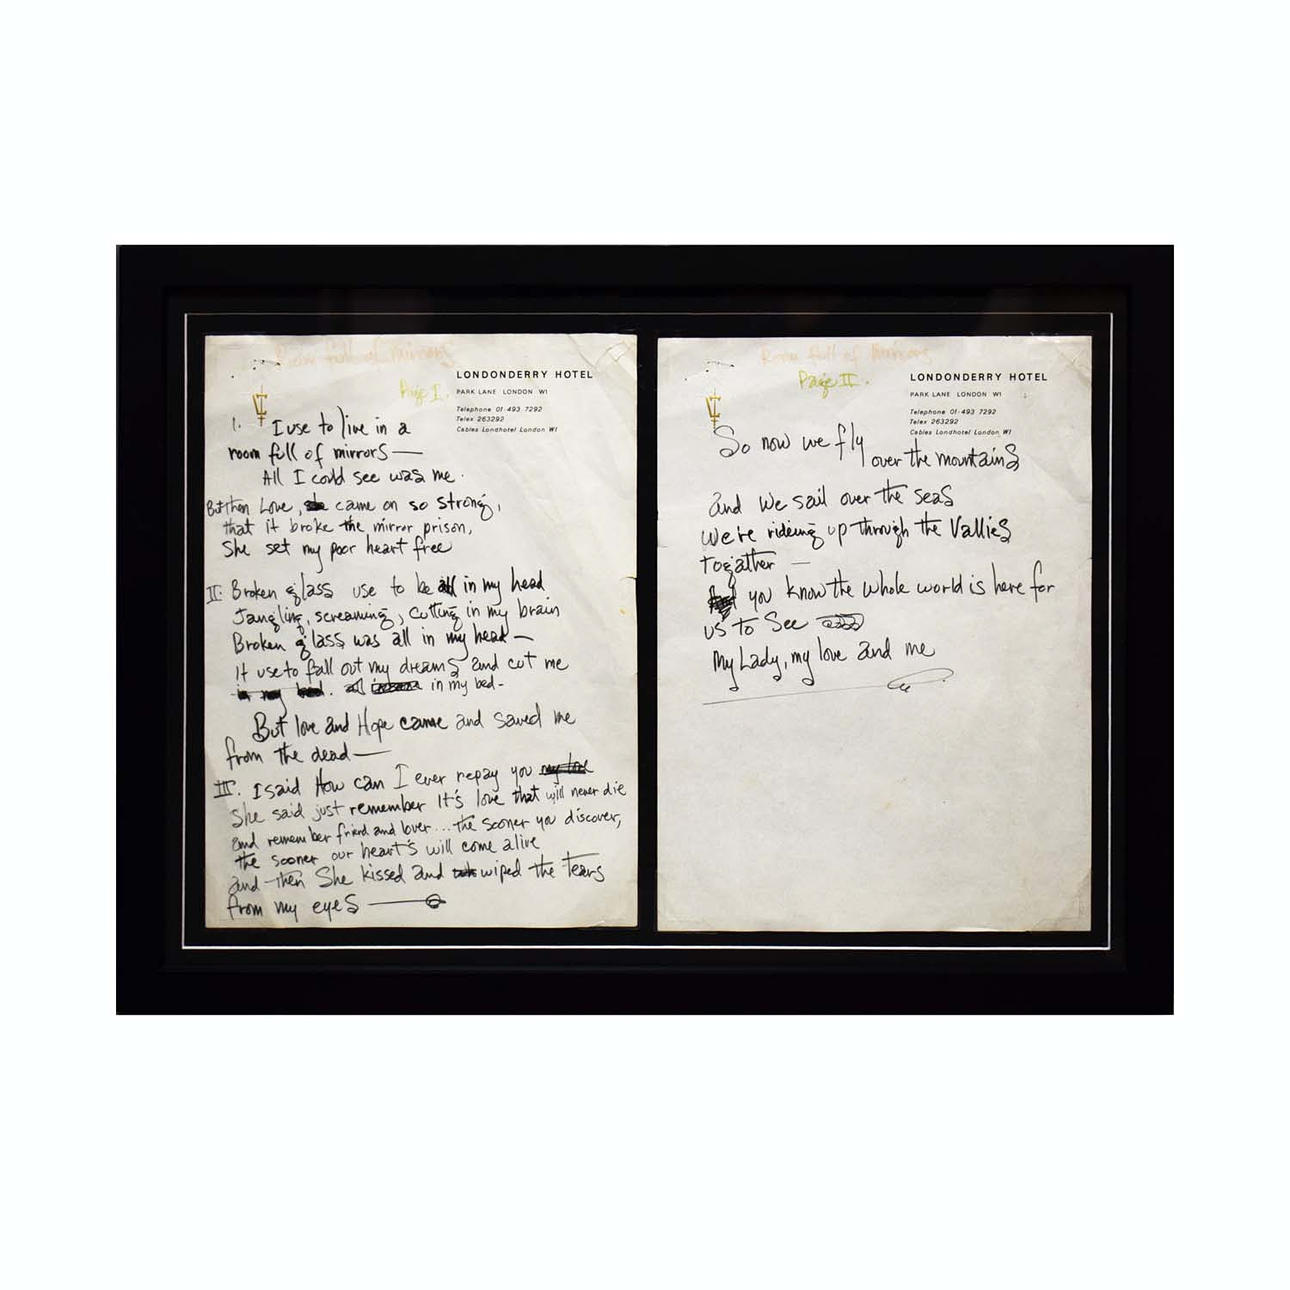 Room full of mirrors
Page I.
LONDONDERRY HOTEL
PARK LANE LONDON W1
Telephone 01-493 7292
Telex 263292
Cables Londhotel London W1
1. I use to live in a
room full of mirrors —
All I could see was me.
But then Love, she came on so strong,
that it broke the mirror prison,
She set my poor heart free
II: Broken glass use to be all in my head
Jangling, screaming, cutting in my brain
Broken glass was all in my head —
it use to fall out my dreams and cut me
in my bed. all in my bed -
But love and Hope came and saved me
from the dead —
III. I said How can I ever repay you my love
She said just remember It's love that will never die
and remember friend and lover... the sooner you discover,
the sooner our heart's will come alive
and then She kissed and wiped the tears
from my eyes —
Room full of mirrors
Page II.
LONDONDERRY HOTEL
PARK LANE LONDON W1
Telephone 01-493 7292
Telex 263292
Cables Londhotel London W1
So now we fly
over the mountains
and we sail over the seas
we're rideing up through the Vallies
togather —
you know the whole world is here for
us to See
My Lady, my love and me